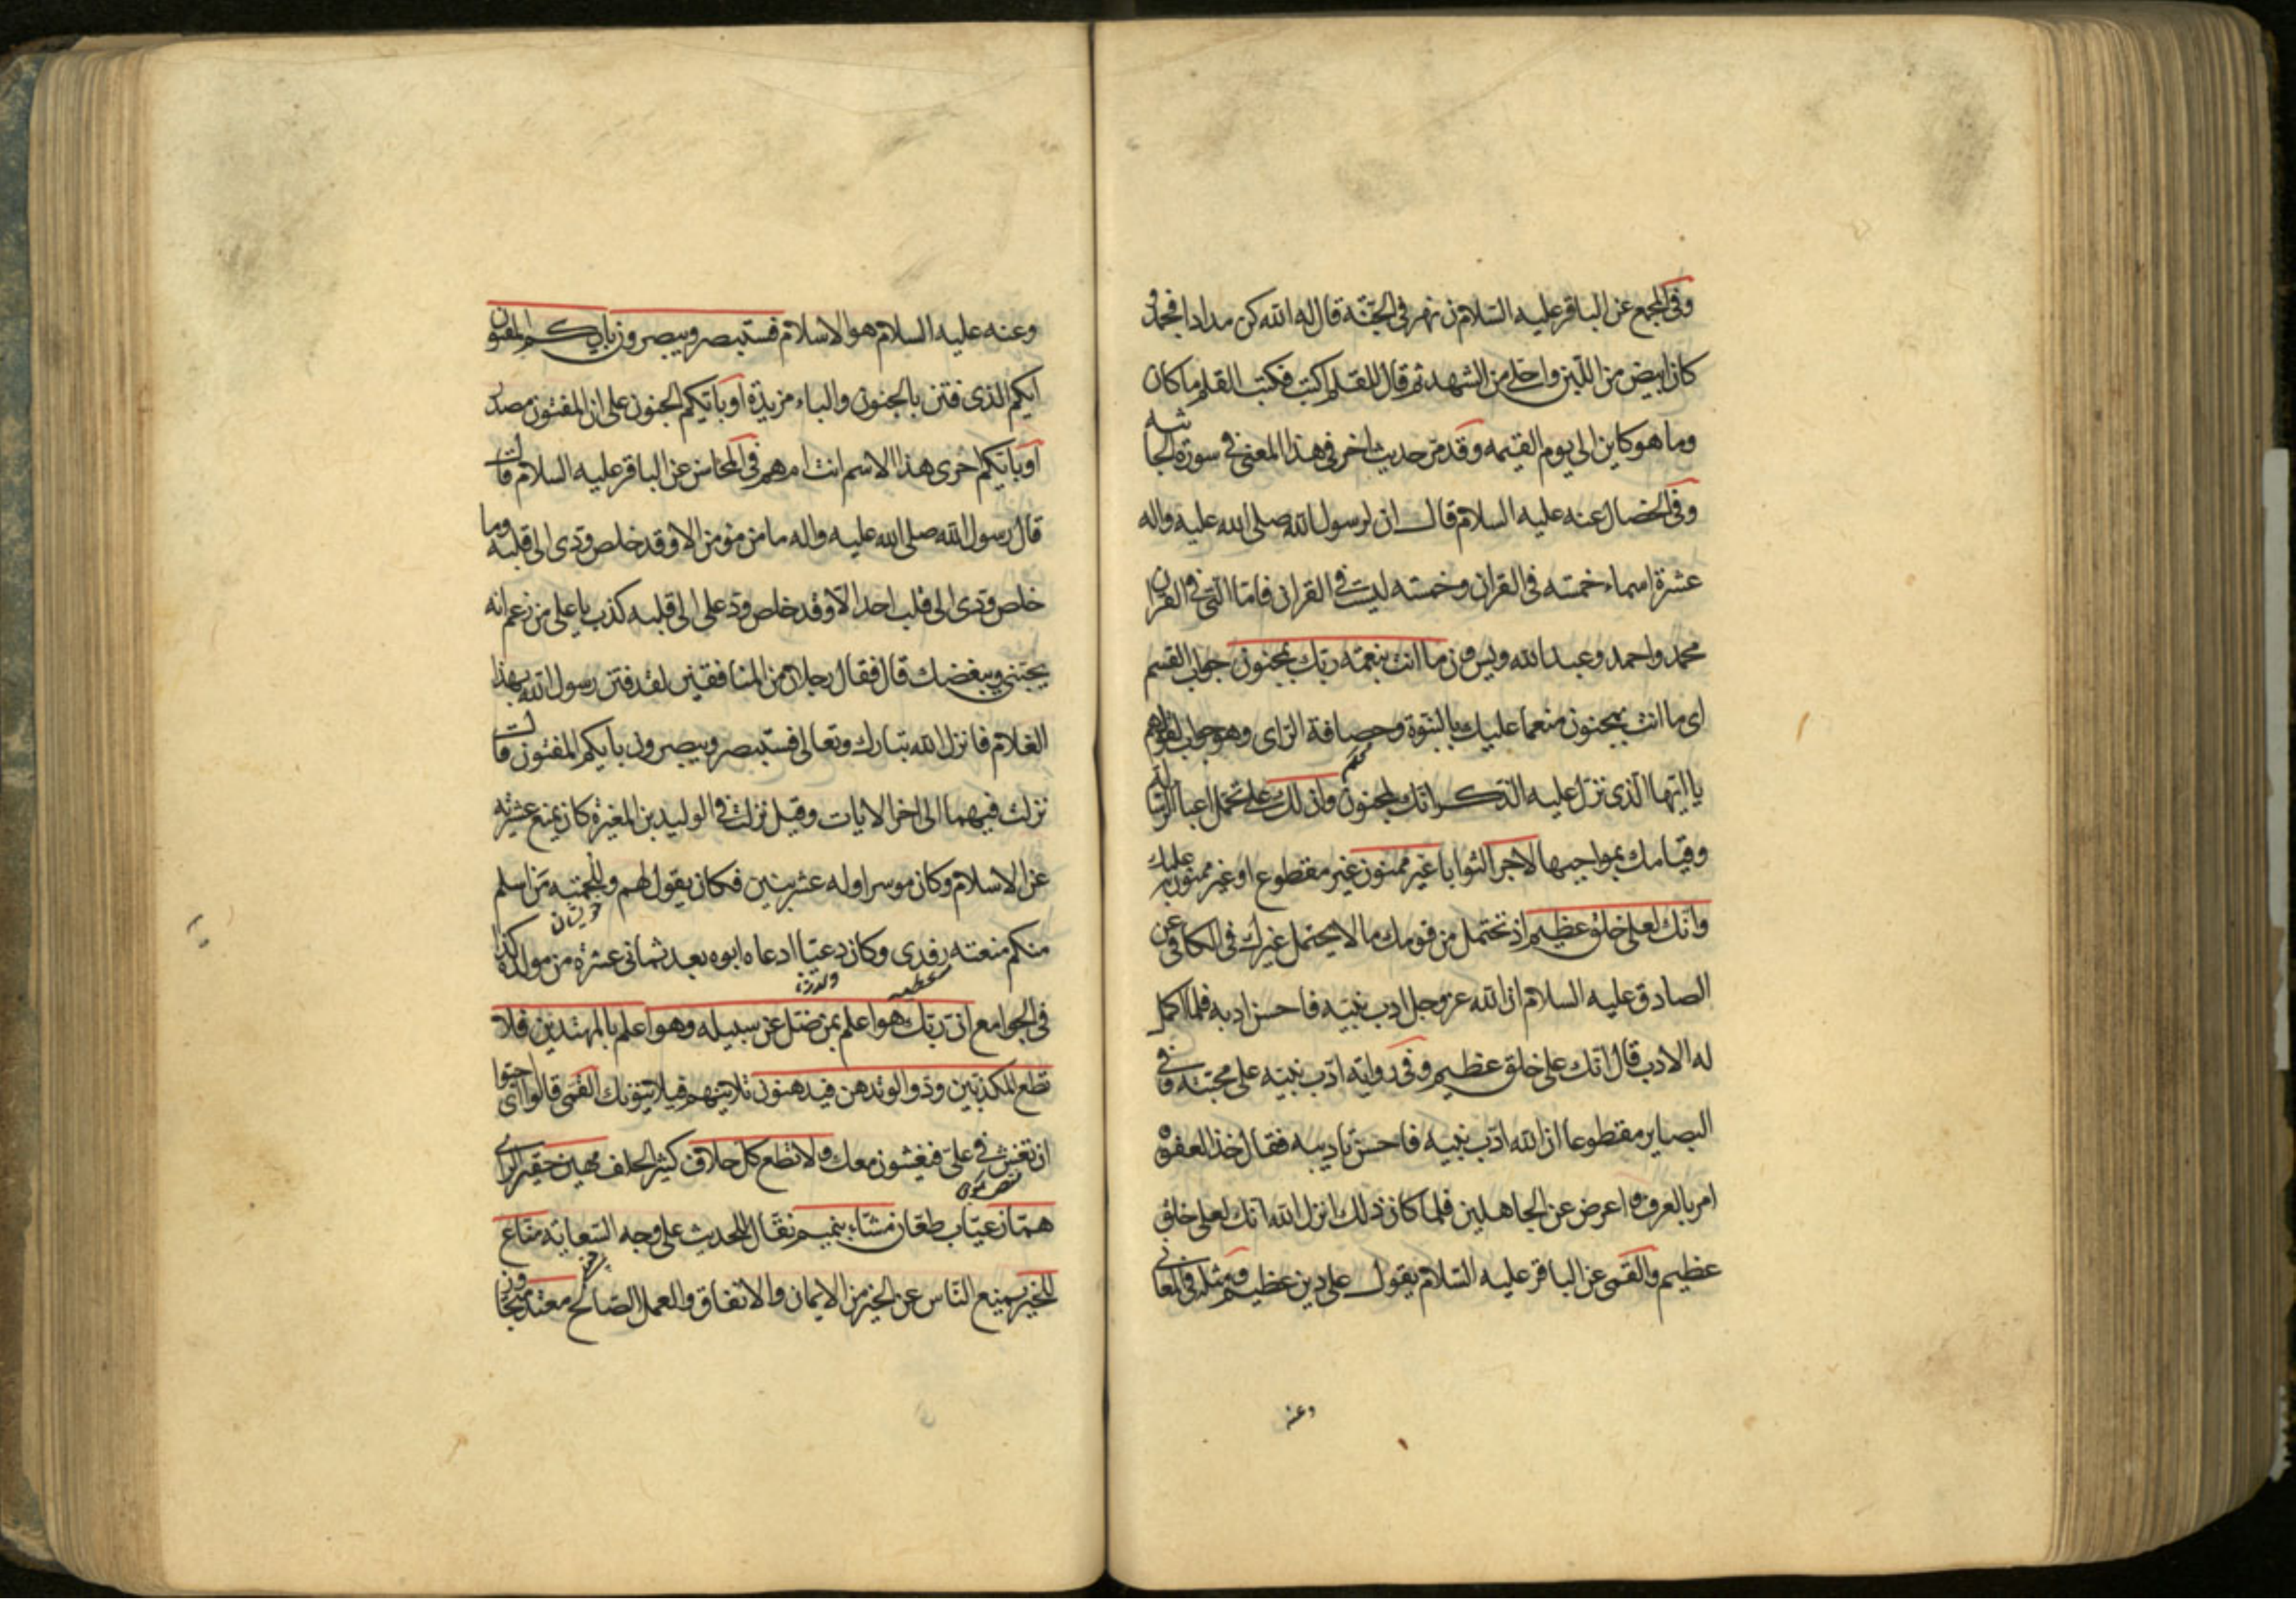 وفى المجمع عن الباقر عليه السلام ن نهر فى الجنّة قال له الله كن مدادا فجمد و
كان ابيض من اللبن واحلى من الشهد ثم قال للقلم اكتب فكتب القلم ما كان
وما هو كاين الى يوم القيمه وقد مرّ حديث اخر فى هذا المعنى فى سورة الجاثيه
وفى الخصال عنه عليه السلام قال ان لرسول الله صلى الله عليه واله
عشرة اسماء خمسه فى القران وخمسته ليست فى القران فامّا التى فى القران
محمد واحمد وعبدالله ويس ون ما انت بنعمة ربّك بمجنون جواب القسم
اى ما انت بمجنون منعما عليك بالنبوة وحصافة الراى وهو جواب لقولهم
يا ايّها الّذى نزّل عليه الذكر انّك لمجنون وان لك على تحمل اعباء الرسالة
وقيامك بمواجبها لاجرا لثوابا غير ممنون غير مقطوع او غير ممنون به عليك
وانّك لعلى خلق عظيم اذ تحتمل من قومك ما لا يحتمل غيرك فى الكافى عن
الصادق عليه السلام ان الله عز وجل ادب نبيّه فاحسن ادبه فلما اكمل
له الادب قال انّك على خلق عظيم وفى رواية ادّب نبيه على محبّته وفى
البصاير مقطوعا ان الله ادّب نبيه فاحسن تاديبه فقال خذ العفو و
امر بالعرف واعرض عن الجاهلين فلما كان ذلك انزل الله انّك لعلى خلق
عظيم والقمى عن الباقر عليه السلام يقول على دين عظيم ومثله فى المعانى
وعنه
وعنه عليه السلام هو الاسلام فستبصر ويبصرون بايكم المفتون
ايّكم الذى فتن بالجنون والباء مزيدة او بايّكم الجنون على ان المفتون مصدر
او بايّكم احرى هذا الاسم انت ام هم فى المحاسن عن الباقر عليه السلام قال
قال رسول الله صلى الله عليه واله ما من مؤمن الا وقد خلص ودى الى قلبه وما
خلص ودى الى قلب احد الّا وقد خلص ود على الى قلبه كذب يا على من زعم انه
يحبّنى ويبغضك قال فقال رجلان من المنافقين لقد فتن رسول الله بهذا
الغلام فانزل الله تبارك وتعالى فستبصر ويبصرون بايكم المفتون قال
نزلت فيهما الى اخر الايات وقيل نزلت فى الوليد بن المغيرة كان يمنع عشيرته
عن الاسلام وكان موسرا وله عشر بنين فكان يقول لهم وللحمته من اسلم
منكم منعته رفدى وكان دعيّا ادعاه ابوه بعد ثمانى عشرة من مولده كذا
فى الجوامع ان ربّك هو اعلم بمن ضلّ عن سبيله وهو اعلم بالمهتدين فلا
تطع المكذبين ودّوا لو تدهن فيدهنون تلاينهم فيلاينونك القمى قالوا اى احبّوا
ان تغش فى علىّ فيغشون معك ولا تطع كل حلاف كثير الحلف مهين حقير الراى
همّاز عيّاب طعّان مشّاء بنميم نقّال للحديث على وجه السعاية منّاع
للخير يمنع النّاس عن الخير من الايمان والانفاق والعمل الصالح معتد متجاوز